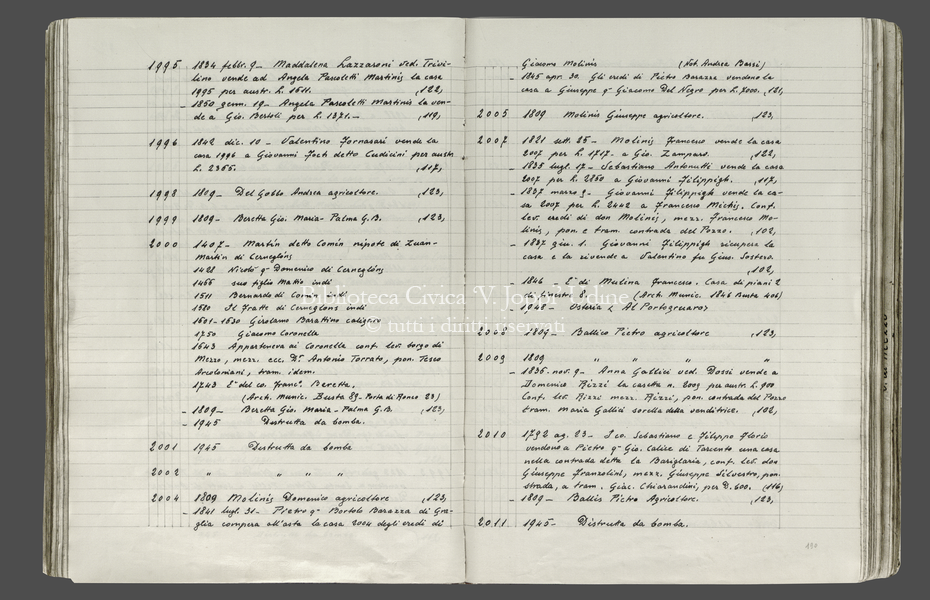 1995 1834 febbr. 9 – Maddalena Lazzaroni ved. Trivi-
lino vende ad Angela Pascoletti Martinis la casa
1995 per austr. L. 1611. (122)
– 1850 genn. 19 – Angela Pascoletti Martinis la ven-
de a Gio. Bertoli per L. 1371.– (119)
1996 1842 dic. 10 – Valentino Fornasari vende la
casa 1996 a Giovanni Foch detto Cudicini per austr.
L. 2365. (117)
1998 1809 – Del Gobbo Andrea agricoltore. (123)
1999 1809 – Beretta Gio. Maria – Palma G.B. (123)
2000 1407 – Martin detto Comin nipote di Zuan-
Martin di Cerneglòns
1428 Nicolò q.m Domenico di Cerneglòns
1466 suo figlio Mattio indi
1511 Bernardo di
1520 di Cerneglòns indi
1601-1630 Girolamo Barattino
1750 Giacomo Coronella
1643 Apparteneva ai Coronella conf. lev. borgo di
Mezzo, mezz. ecc. D.r Antonio Torrato, pon. Tesco
tram. idem.
1743 E' del co. Franc.º Beretta.
(Arch. Munic. Busta 89 – Porta di Ronco 23)
– 1809 – Beretta Gio. Maria – Palma G.B. (123)
– 1945 Distrutta da bombe.
2001 1945 Distrutta da bombe
2002 " " " "
2004 1809 Molinis Domenico agricoltore (123)
– 1841 lugl. 31 – Pietro q.m Bortolo Barazza di
compera all'asta la casa 2004 degli eredi di
Giacomo Molinis (Not. Andrea Bassi)
– 1845 apr. 30. Gli eredi di Pietro Barazza vendono la
casa a Giuseppe q.m Giacomo Del Negro per L. 7000. (121)
2005 1809 Molinis Giuseppe agricoltore. (123)
2007 1821 sett. 25 – Molinis Francesco vende la casa
2007 per L. 1717 – a Gio. Zamparo. (122)
– 1835 lugl. 17 – Sebastiano Antoniutti vende la casa
2007 per L. 2850 a Giovanni Filippigh. (117)
– 1837 marzo 9 – Giovanni Filippigh vende la ca-
sa 2007 per L. 2402 a Francesco Michis. Conf.
lev. eredi di don Molinis, mezz. Francesco Mo-
linis, pon. e tram. contrada del Pozzo. (102)
– 1837 giu. 1. Giovanni Filippigh ricupera la
casa e la rivende a Valentino fu Gius. Sostero.
(102)
1846 E' di Mulina Francesco. Casa di piani 2
finestre 8. (Arch. Munic. 1846 Busta 406)
– 1940 – Osteria "Al Portogruaro"
1809 – Ballico Pietro agricoltore (123)
2009 1809 " " " "
– 1836 nov. 9 – Anna Gallici ved. Dossi vende a
Domenico Rizzi la casetta n. 2009 per austr. L. 900
Conf. lev. Rizzi mezz. Rizzi, pon. contrada del Pozzo
tram. Maria Gallici sorella della venditrice. (102)
2010 1792 ag. 23 – I co. Sebastiano e Filippo Florio
vendono a Pietro q.m Gio. Calice di Tarcento una casa
nella contrada detta la Bariglaria, conf. lev. don
Giuseppe Franzolini, mezz. Giuseppe Silvestro, pon.
strada, a tram. Giac. Chiarandini, per D. 600. (116)
– 1809 – Ballis Pietro Agricoltore. (123)
2011 1945 – Distrutta da bombe.
190
Biblioteca Civica 'V. Joppi' Udine
© tutti i diritti riservati